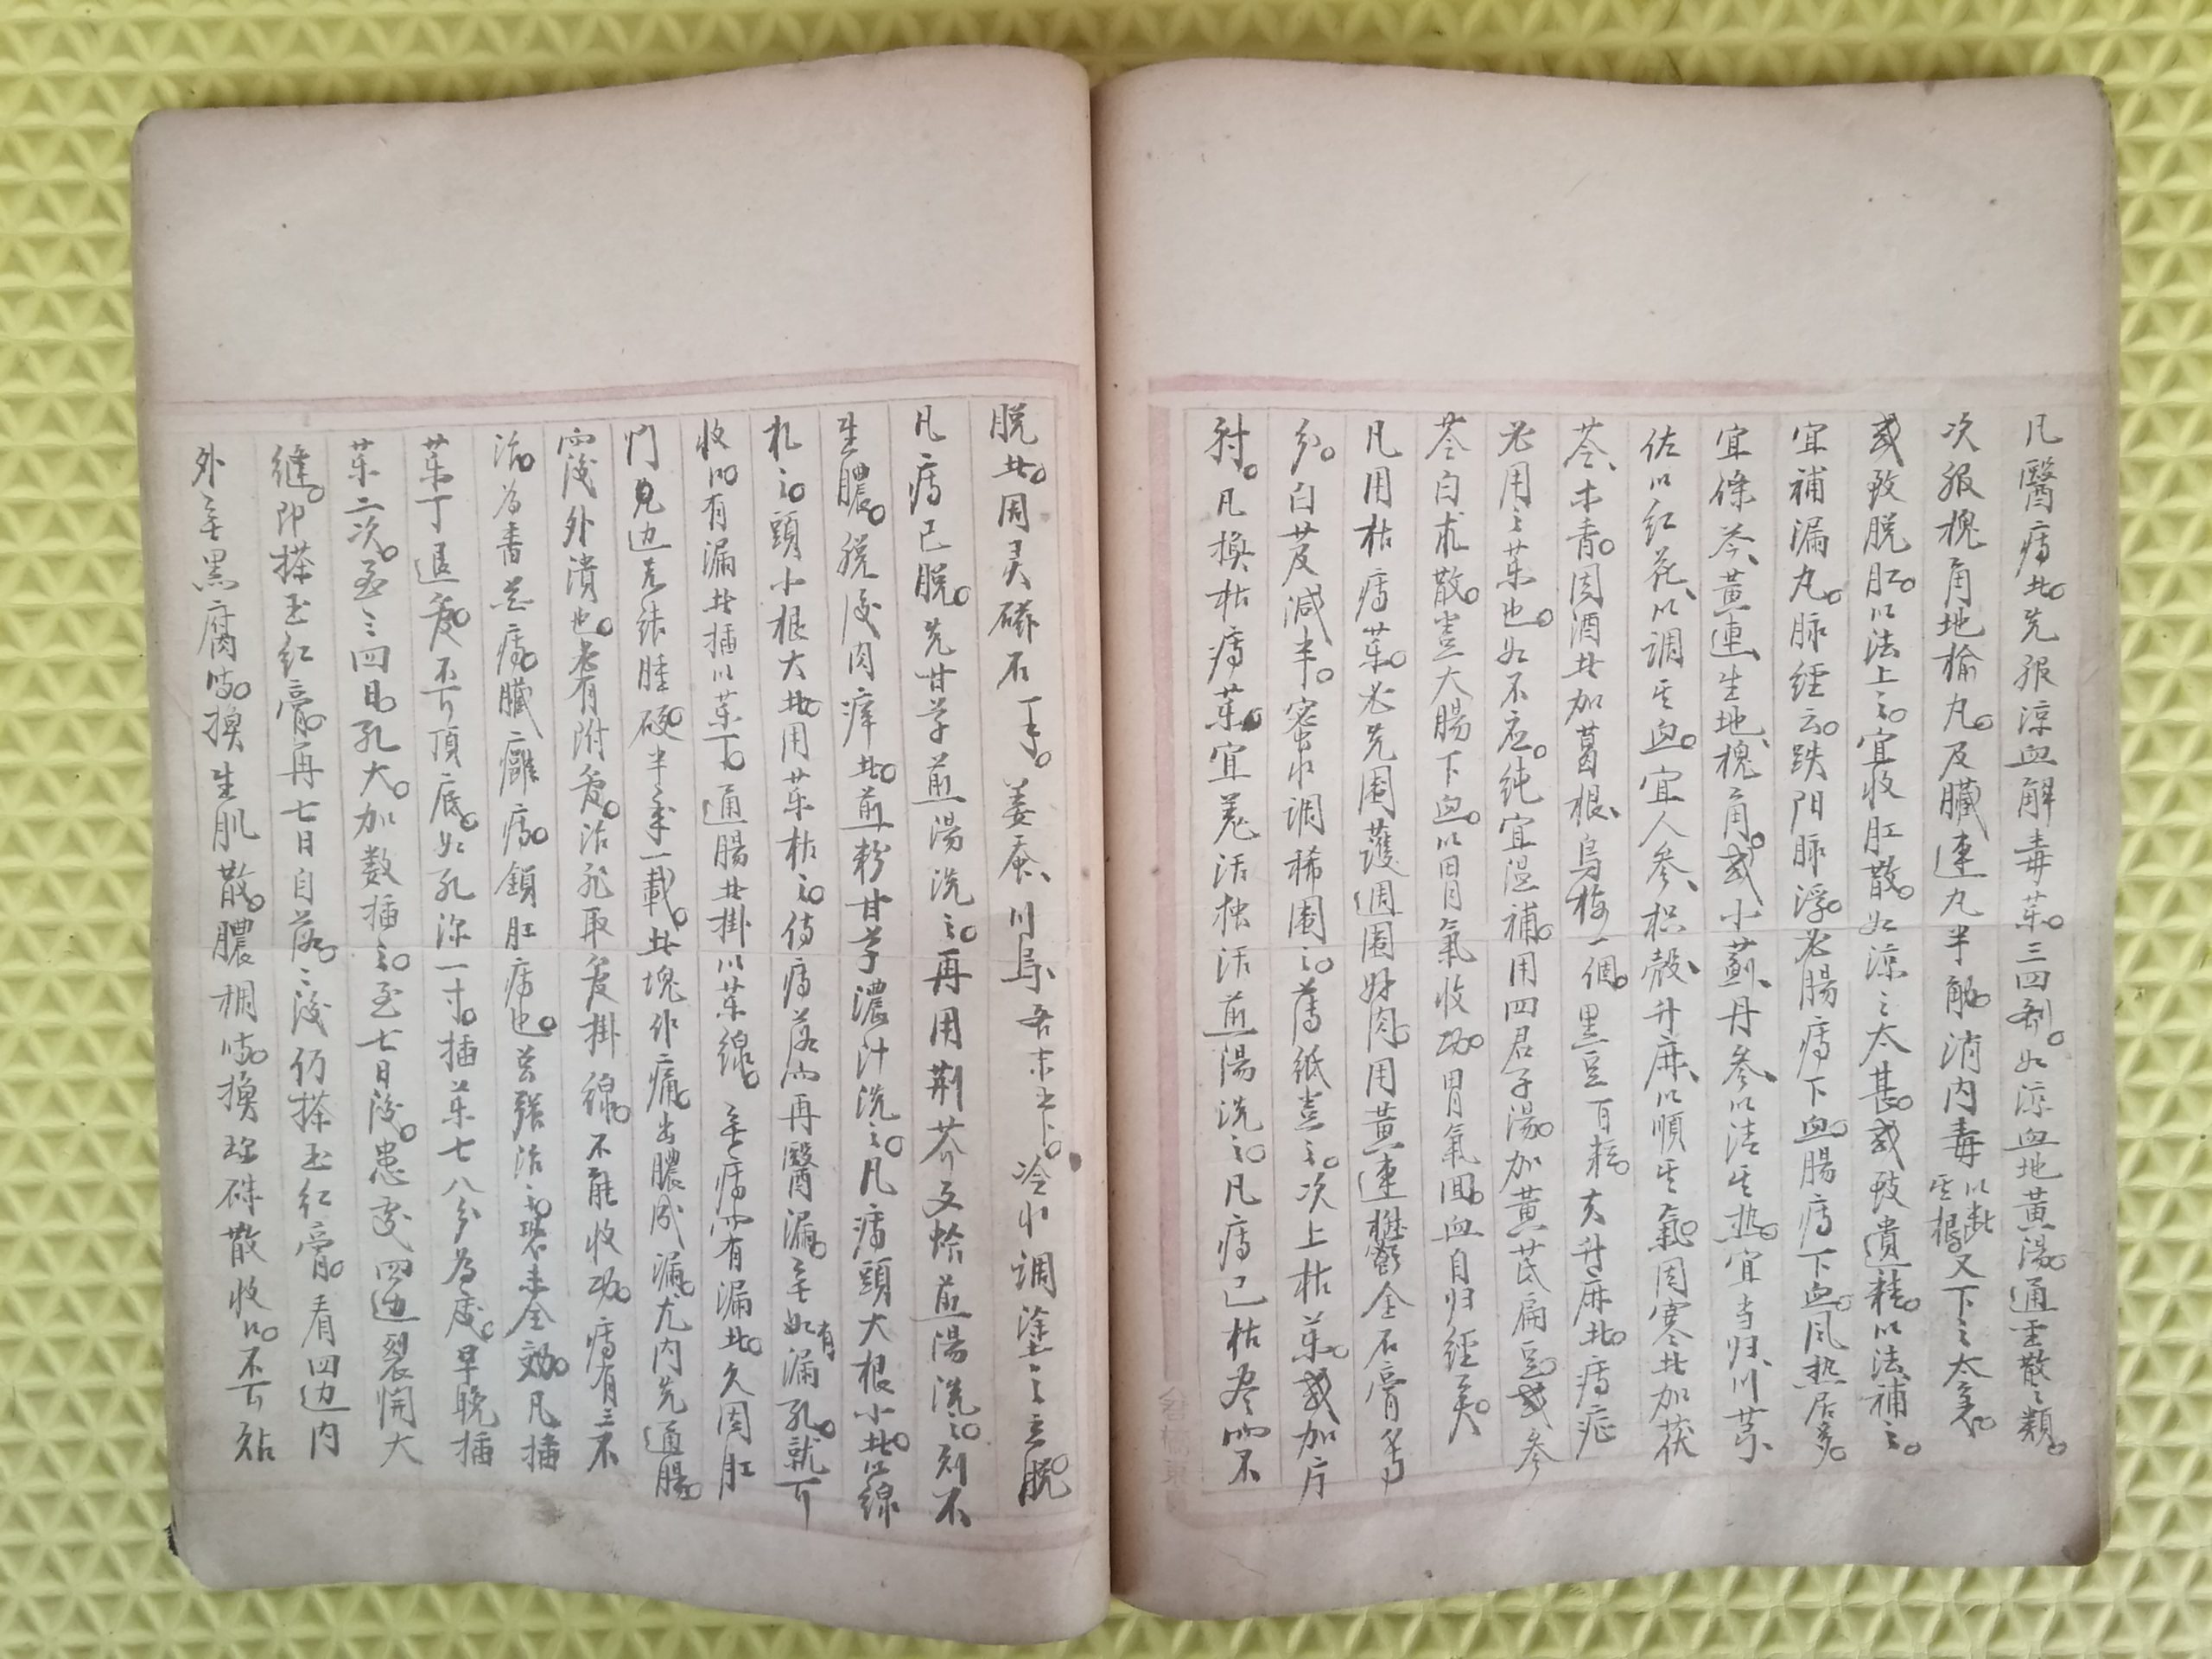 凡醫痔者。先服涼血解毒藥。三四劑。如涼血地黃湯。通圣散之類。
次服槐角地榆丸。及臟連丸半觔。消内毒以此去根又下之太衰。
或致脱肛。以法上之。宜收肛散。如涼之太甚。或致遺精。以法補之。
宜補漏丸。脉經云。趺阳脉浮。必腸痔下血。腸痔下血。風热居多。
宜條芩、黃連、生地、槐角。或小薊、丹参、以清其热。宜当归、川芎、
佐以红花、以调其血。宜人参、枳殼、升麻、以順其氣。因寒者加茯
苓、木香。因酒者加葛根、烏梅一個。黑豆百粒。夫升麻者。痔症
必用之藥也。如不应。纯宜温補。用四君子湯。加黃芪扁豆。或参
苓白朮散。盖大腸下血。以胃氣收功。胃氣回。血自归经矣。
凡用枯痔藥。必先圍護週圍好肉。用黃連鬱金石膏等
分。白芨減半。蜜水调稀圍之。薄紙盖之。次上枯藥。或加片
射。凡换枯痔藥。宜羌活独活煎湯洗之。凡痔已枯尽而不
脱者。用灵磁石一个。姜蚕、川烏、各末之下。冷水调塗之立脱。
凡痔已脱。先甘草煎湯洗之。再用荆芥文蛤煎湯洗之。刻不
生膿。脱後肉痒者。煎粉甘草濃汁洗之。凡痔頭大根小者。以線
扎之。頭小根大者。用藥枯之。待痔落而再醫漏。無如有漏孔。就可
收口。有漏者插以藥丁。通腸者掛以藥線。無痔而有漏者。久因肛
門見边先结腫硬。半年一載。其塊作痛。出膿成漏。尤内先通腸。
而後外潰也。若有附管。治死取管掛線。不能收功。痔有三不
治。为書芒痔。臟癰痔。鎖肛痔也。若强治之。碧未全効。凡插
藥丁退管。不可頂底。如孔深一寸。插藥七八分为度。早晚插
藥二次。至三四日。孔大。加数插之。至七日後。患處四边裂開大
缝。即搽玉红膏。再七日自落。落後仍搽玉红膏。看四边内
外無黑腐時。换生肌散。膿稠時。换珍珠散收口。不可粘